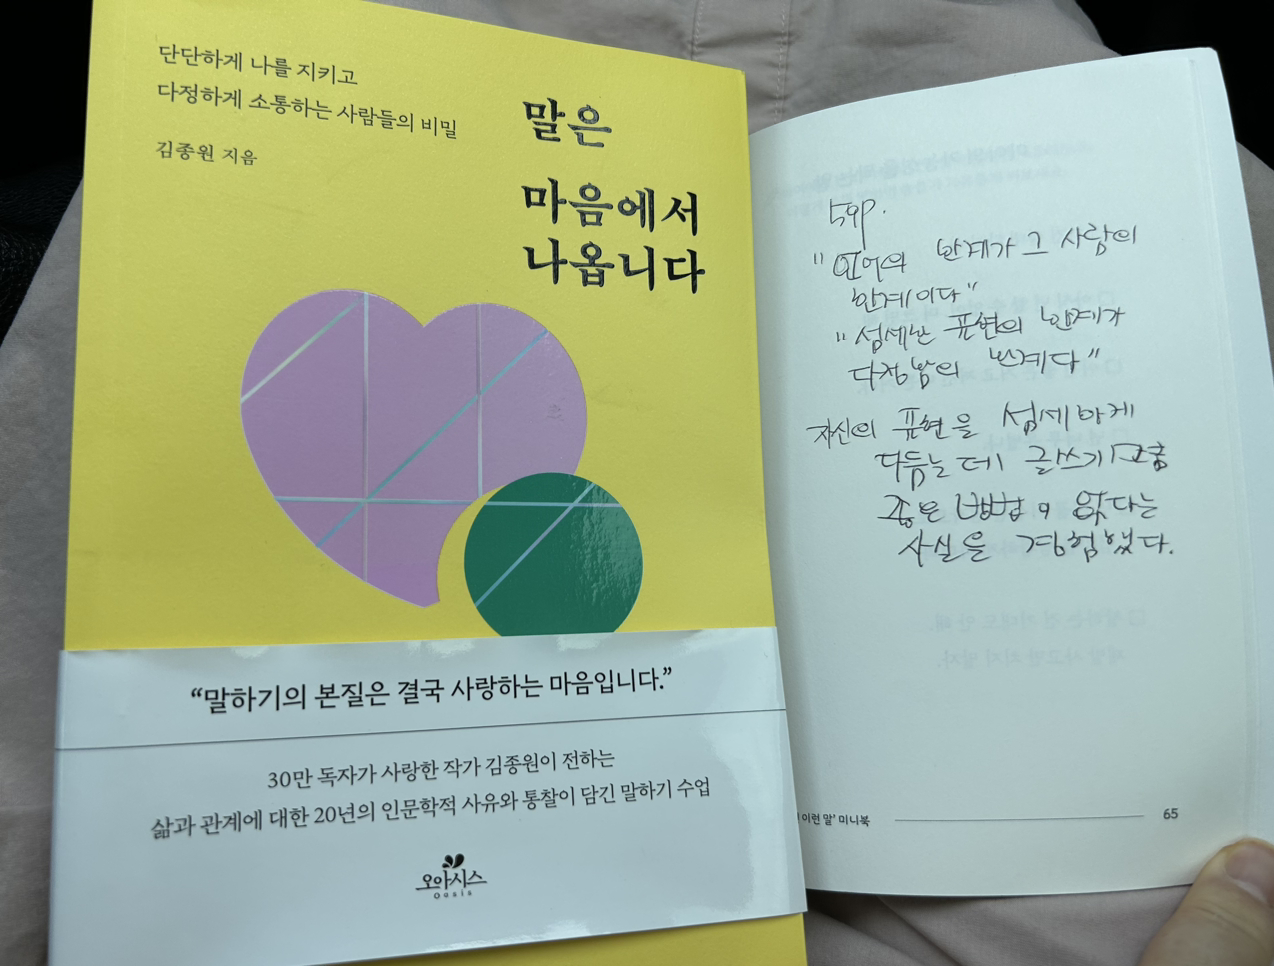 단단하게 나를 지키고
다정하게 소통하는 사람들의 비밀
김종원 지음
말은
마음에서
나옵니다
“말하기의 본질은 결국 사랑하는 마음입니다.”
30만 독자가 사랑한 작가 김종원이 전하는
삶과 관계에 대한 20년의 인문학적 사유와 통찰이 담긴 말하기 수업
오아시스
oasis
59p.
"언어의 한계가 그 사람의
한계이다"
"섬세한 표현의 한계가
다정함의 한계다"
자신의 표현을 섬세하게
다듬는 데 글쓰기만큼
좋은 방법이 없다는
사실을 경험했다.
이런 말’ 미니북
65